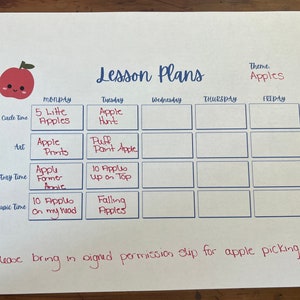 Lesson Plans
Theme:
Apples
MONDAY Tuesday Wednesday THURSDAY FRIDAY
Circle Time
5 Little
Apples
Apple
Hunt
Art
Apple
Prints
Puff
Paint Apple
Story Time
Apple
Farmer
Annie
10 Apples
up on Top
Music Time
10 Apples
on my head
Falling
Apples
please bring in signed permission slip for apple picking